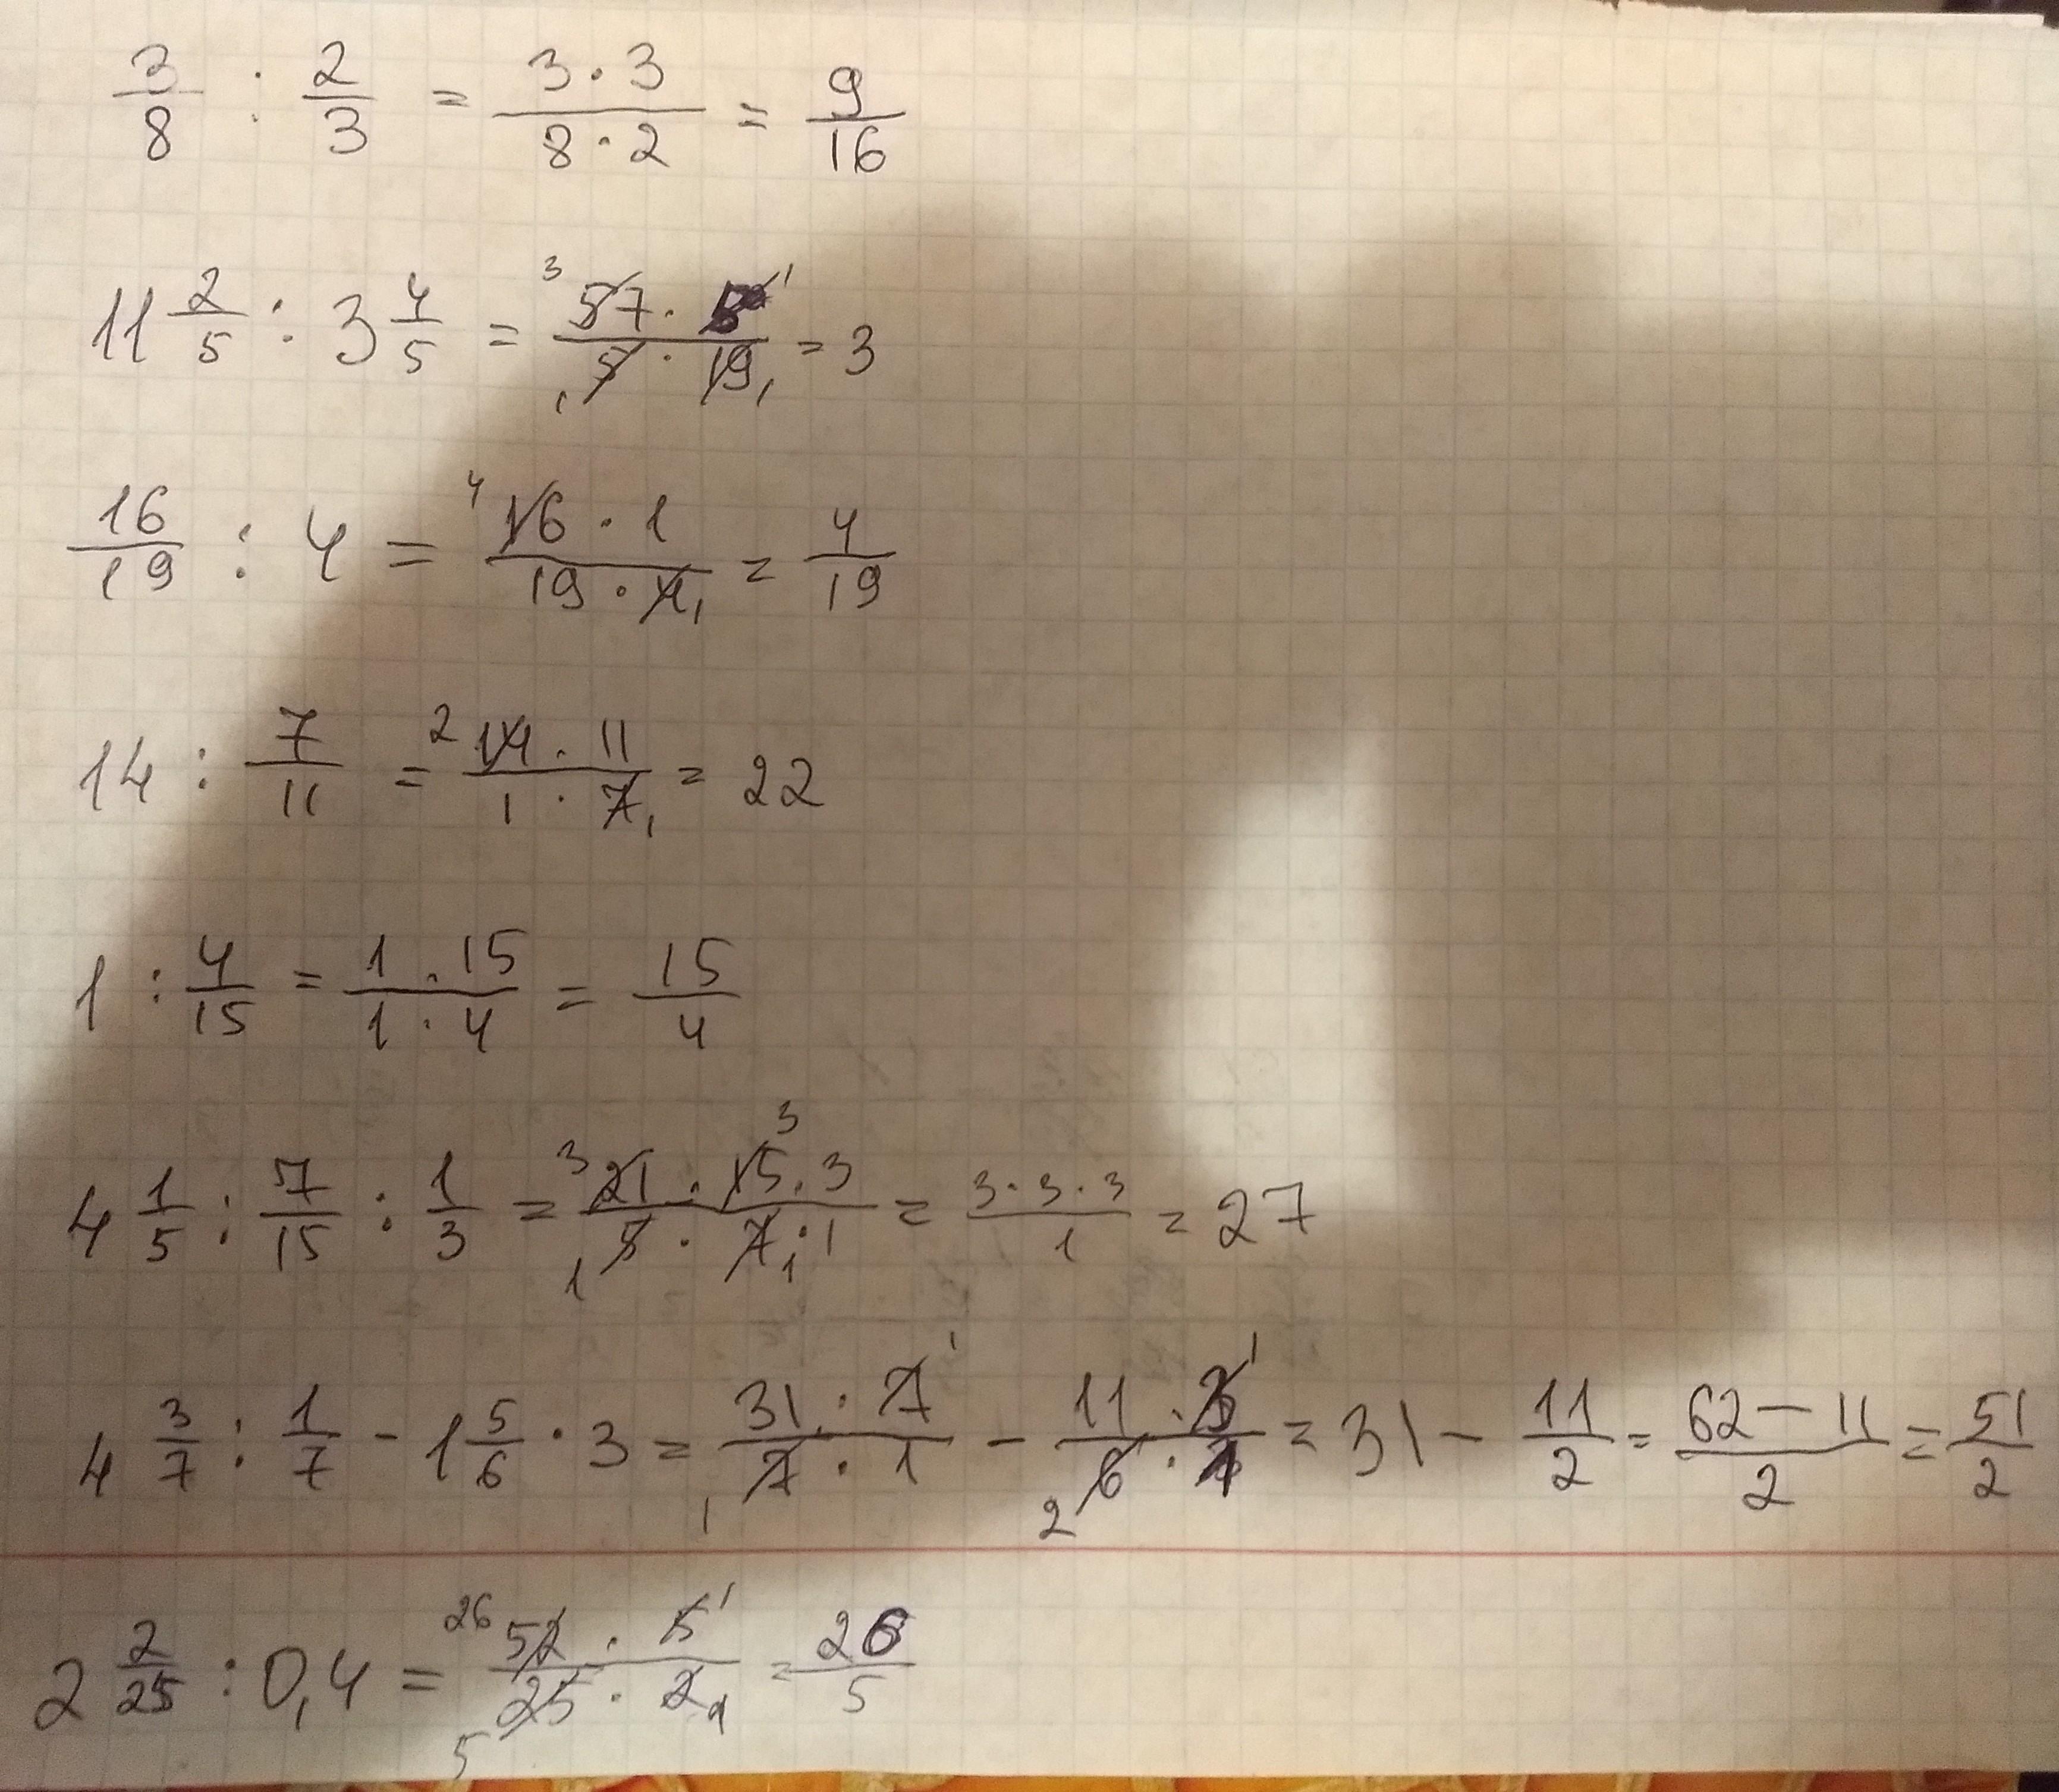 3/8 : 2/3 = 3·3/8·2 = 9/16
11 2/5 : 3 4/5 = 57·5/5·19 = 3
16/19 : 4 = 16·1/19·4 = 4/19
14 : 7/11 = 14·11/1·7 = 22
1 : 4/15 = 1·15/1·4 = 15/4
4 1/5 : 7/15 : 1/3 = 21·15·3/5·7·1 = 3·3·3/1 = 27
4 3/7 : 1/7 - 1 5/6 · 3 = 31·7/7·1 - 11·3/6·1 = 31 - 11/2 = 62-11/2 = 51/2
2 2/25 : 0,4 = 52·5/25·2 = 26/5